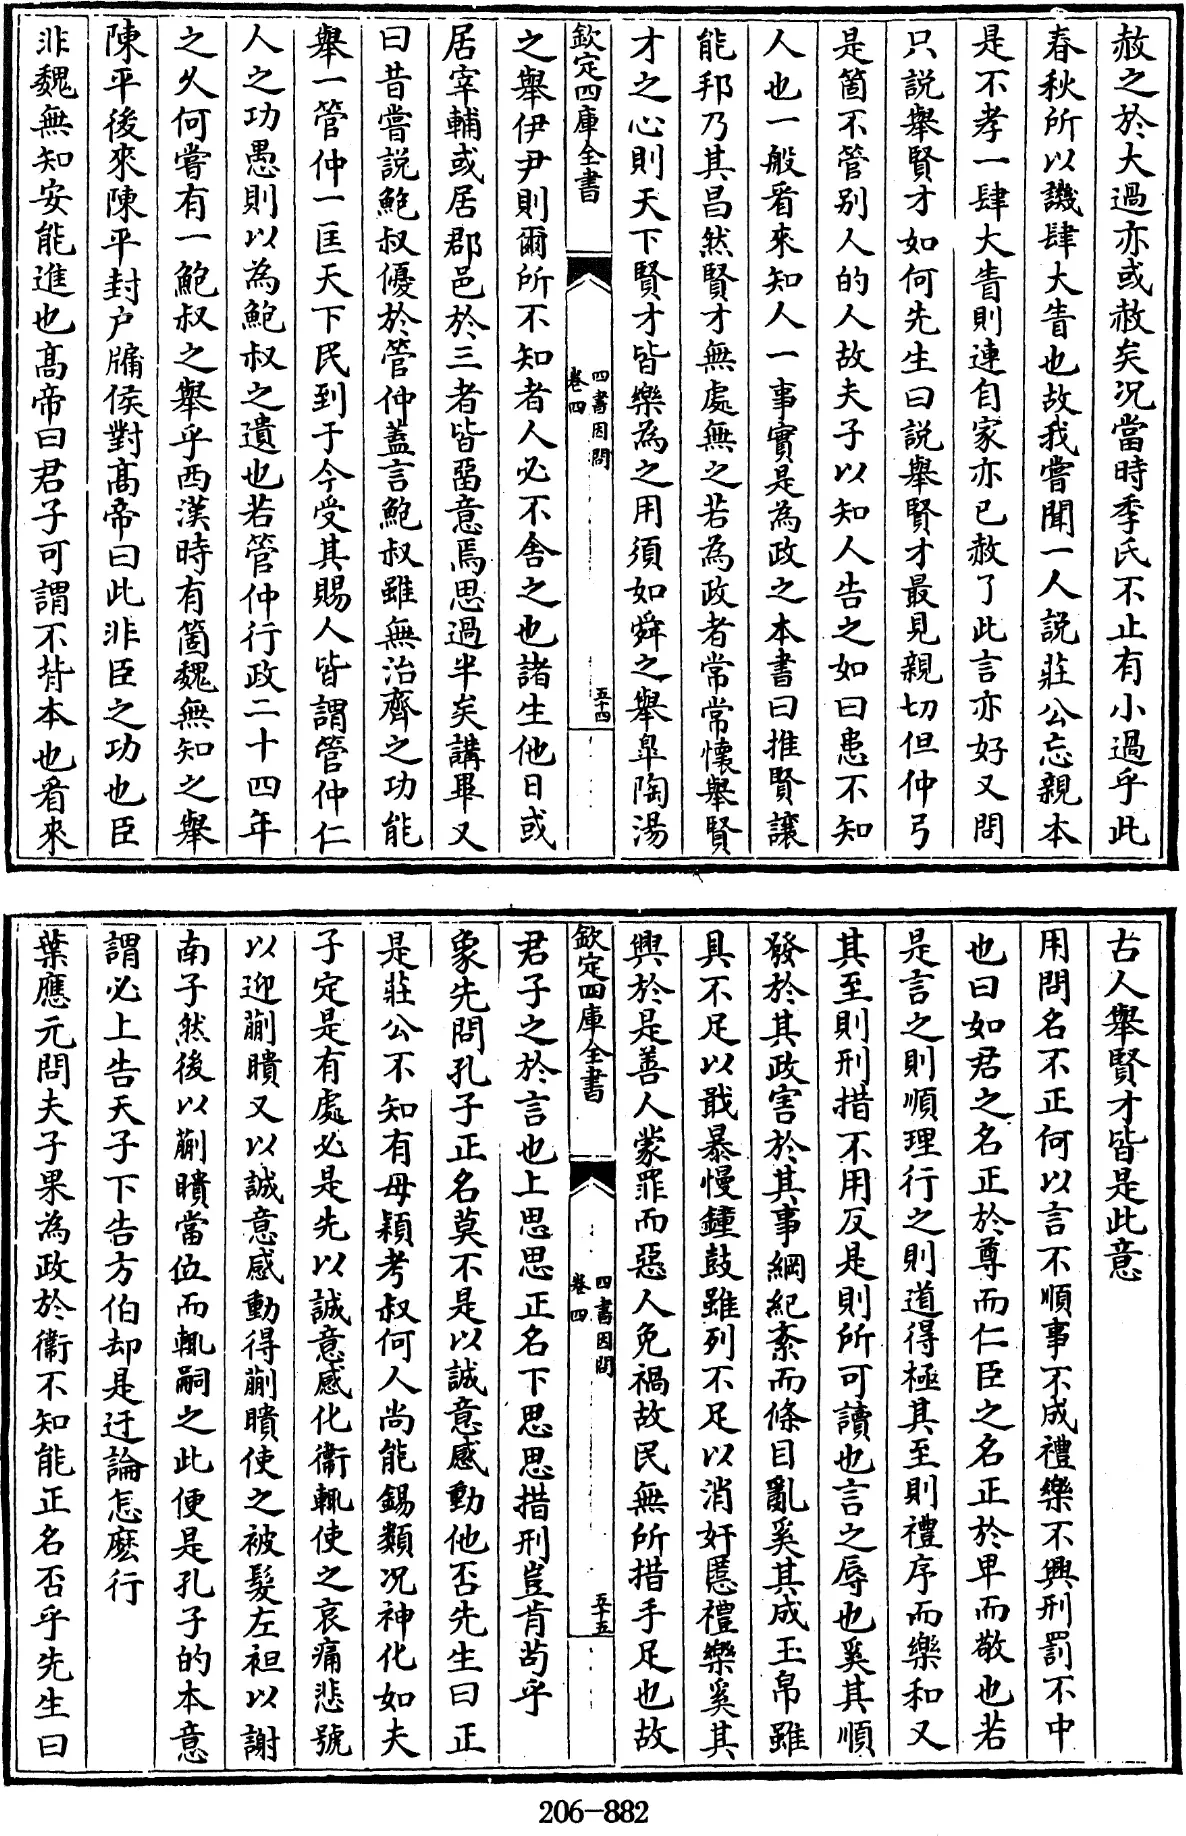 赦之於大過亦或赦矣况當時季氏不止有小過乎此
春秋所以譏肆大眚也故我嘗聞一人説莊公忘親本
是不孝一肆大眚則連自家亦已赦了此言亦好又問
只説舉賢才如何先生曰説舉賢才最見親切但仲弓
是箇不管别人的人故夫子以知人告之如曰患不知
人也一般看來知人一事實是為政之本書曰推賢讓
能邦乃其昌然賢才無處無之若為政者常常懷舉賢
才之心則天下賢才皆樂為之用須如舜之舉臯陶湯
欽定四庫全書
四書因問
卷四
五十四
之舉伊尹則爾所不知者人必不舍之也諸生他日或
居宰輔或居郡邑於三者皆畱意焉思過半矣講畢又
曰昔嘗説鮑叔優於管仲蓋言鮑叔雖無治齊之功能
舉一管仲一匡天下民到于今受其賜人皆謂管仲仁
人之功愚則以為鮑叔之遺也若管仲行政二十四年
之乆何嘗有一鮑叔之舉乎西漢時有箇魏無知之舉
陳平後來陳平封户牖侯對髙帝曰此非臣之功也臣
非魏無知安能進也髙帝曰君子可謂不背本也看來
古人舉賢才皆是此意
用問名不正何以言不順事不成禮樂不興刑罰不中
也曰如君之名正於尊而仁臣之名正於卑而敬也若
是言之則順理行之則道得極其至則禮序而樂和又
其至則刑措不用反是則所可讀也言之辱也奚其順
發於其政害於其事綱紀紊而條目亂奚其成玉帛雖
具不足以戢暴慢鐘鼓雖列不足以消奸慝禮樂奚其
興於是善人蒙罪而惡人免禍故民無所措手足也故
欽定四庫全書
四書因問
卷四
五十五
君子之於言也上思思正名下思思措刑豈肯茍乎
象先問孔子正名莫不是以誠意感動他否先生曰正
是莊公不知有母穎考叔何人尚能錫類况神化如夫
子定是有處必是先以誠意感化衞輒使之哀痛悲號
以迎蒯聵又以誠意感動得蒯聵使之被髪左袒以謝
南子然後以蒯聵當位而輒嗣之此便是孔子的本意
謂必上告天子下告方伯却是迂論怎麽行
葉應元問夫子果為政於衞不知能正名否乎先生曰
206-882